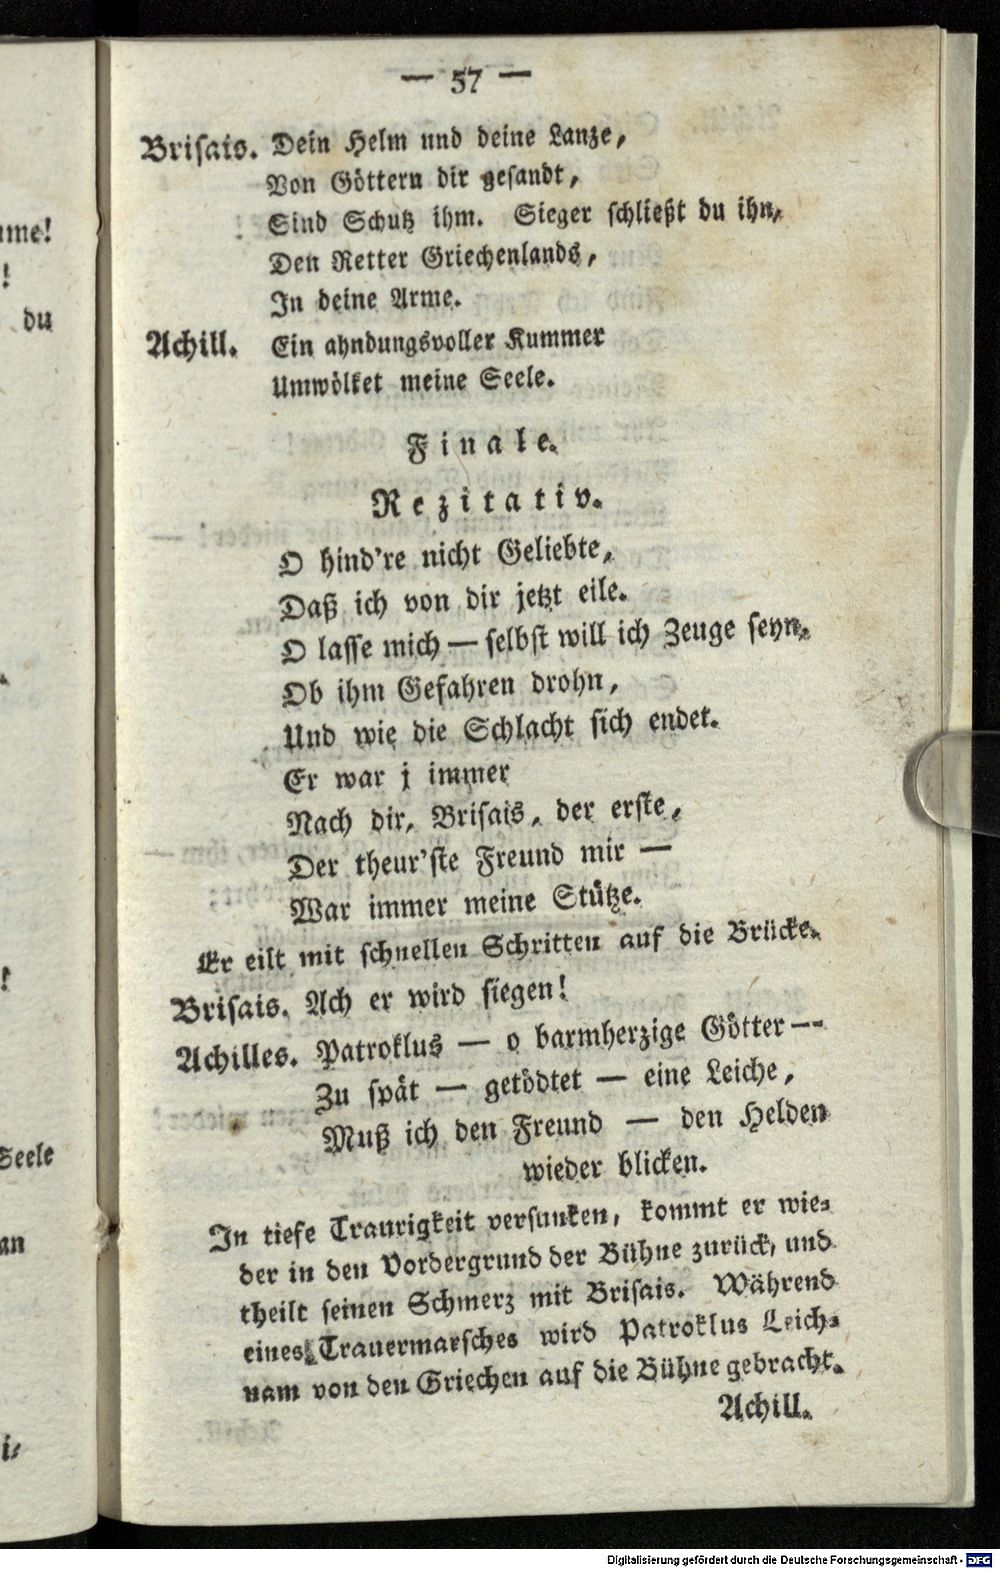 — 57 —
Brisais. Dein Helm und deine Lanze,
Von Göttern dir gesandt,
Sind Schutz ihm. Sieger schließt du ihn,
Den Retter Griechenlands,
In deine Arme.
Achill. Ein ahndungsvoller Kummer
Umwölket meine Seele.
Finale.
Rezitativ.
O hind're nicht Geliebte,
Daß ich von dir jetzt eile.
O lasse mich — selbst will ich Zeuge seyn,
Ob ihm Gefahren drohn,
Und wie die Schlacht sich endet.
Er war j immer
Nach dir, Brisais, der erste,
Der theur'ste Freund mir —
War immer meine Stütze.
Er eilt mit schnellen Schritten auf die Brücke.
Brisais. Ach er wird siegen!
Achilles. Patroklus — o barmherzige Götter —
Zu spät — getödtet — eine Leiche,
Muß ich den Freund — den Helden
wieder blicken.
In tiefe Traurigkeit versunken, kommt er wie-
der in den Vordergrund der Bühne zurück, und
theilt seinen Schmerz mit Brisais. Während
eines Trauermarsches wird Patroklus Leich-
nam von den Griechen auf die Bühne gebracht.
Achill.
ume!
!
du
!
Seele
an
i-
Digitalisierung gefördert durch die Deutsche Forschungsgemeinschaft - DFG